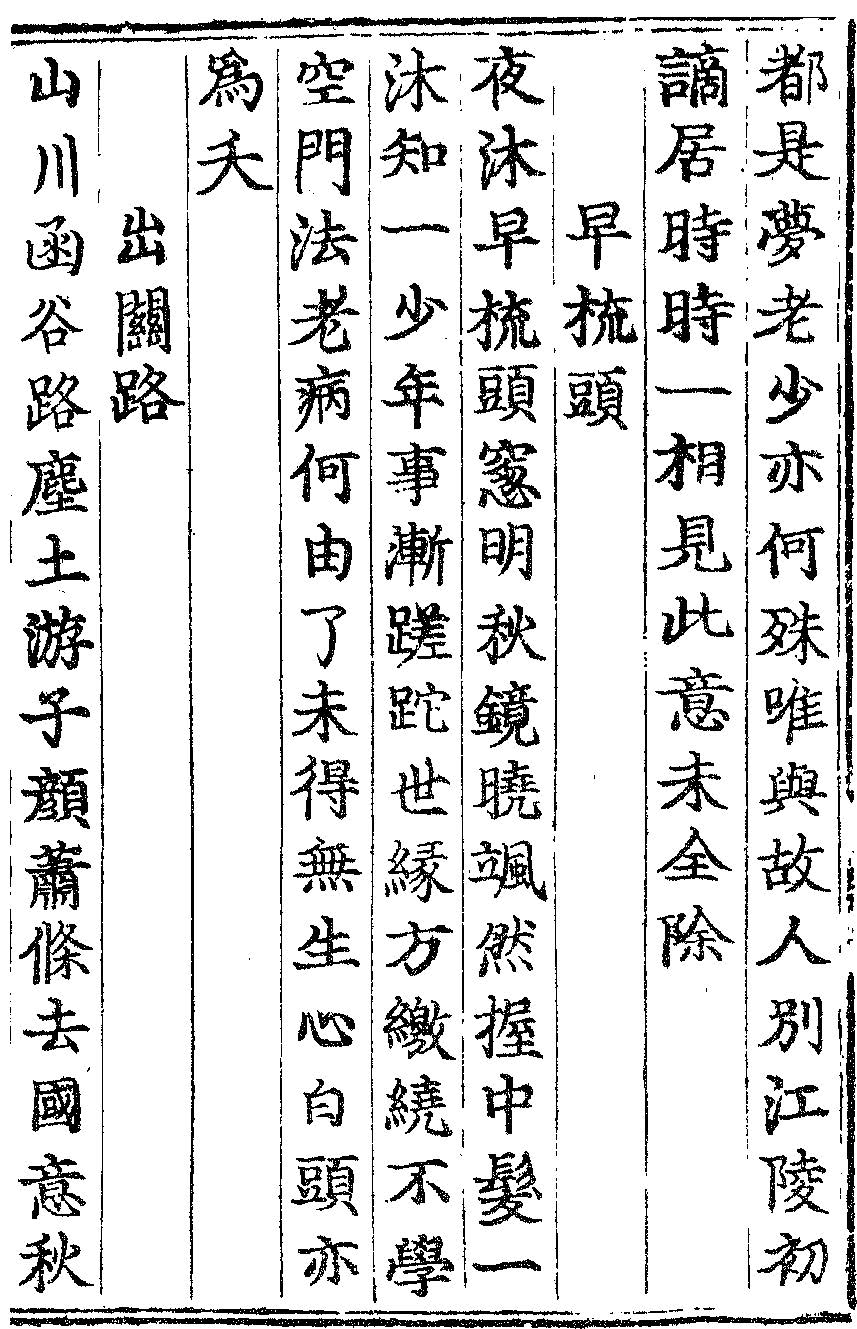 都是夢老少亦何殊唯與故人別江陵初
謫居時時一相見此意未全除
早梳頭
夜沐早梳頭窻明秋鏡曉颯然握中髮一
沐知一少年事漸蹉跎世縁方繳繞不學
空門法老病何由了未得無生心白頭亦
爲夭
出關路
山川函谷路塵土游子顔蕭條去國意秋